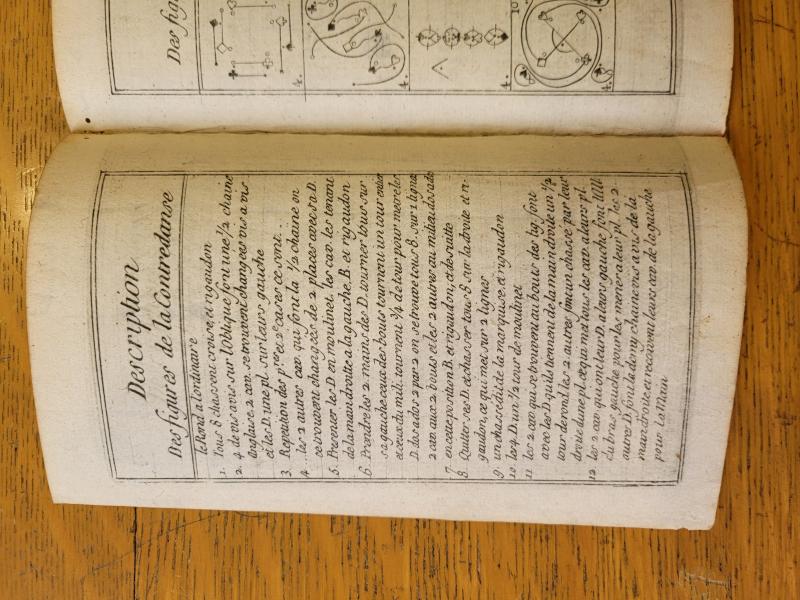 Des fig
4.
4.
10
4.
Description
Des figures de la Contredanse
le Rond a lordinaire
1. Tous 8 chassent croise, et rigaudon
2. 4 de vis avis sur l'oblique font une ½ chaine
anglaise. 2 cav. se trouvent changées vis a vis
et les D. une pl. sur leurs gauche
3. Repetition des p.res et 2.e cases ce sont
4. les 2 autres cav. qui font la ½ chaine on
se trouvent changées de 2 places avec sa D.
5. Presenter les D. en moulinet. les cav. les tenant
de la main droite a la gauche. B. et rigaudon
6. Prendre les 2 mains des D. tourner tous sur
sa gauche ceux des bouts tournent un tour entier
et ceux du mili. tournent ¾ de tour pour metre les
D. dos a dos 2 par 2 on se trouve tous 8. sur 1 ligne
2 cav. aux 2 bouts et les 2 autres au milieu dos a do
7. en cette position B. et rigaudon, et de suite
8. Quitter ses D. et chasser tous 8. sur la droite et ri-
gaudon, ce qui met sur 2 lignes
9. un chassé dit de la marquise, et rigaudon
10. les 4 D. un ½ tour de moulinet
11. les 2 cav. qui se trouvent au bouts des lig. font
avec les D. quils tiennent de la main droite un ½
tour de rond, les 2 autres f. meun chassé par leur
droite dune pl. ce qui met tous les cav. a leurs pl.
12. les 2 cav. qui ont leur D. a leurs gauche font
du bras gauche pour les mener a leur pl. les 2
autres D. font la demy chaine vis a vis de la
main droite, et recoivent leurs cav. de la gauche
pour la Main